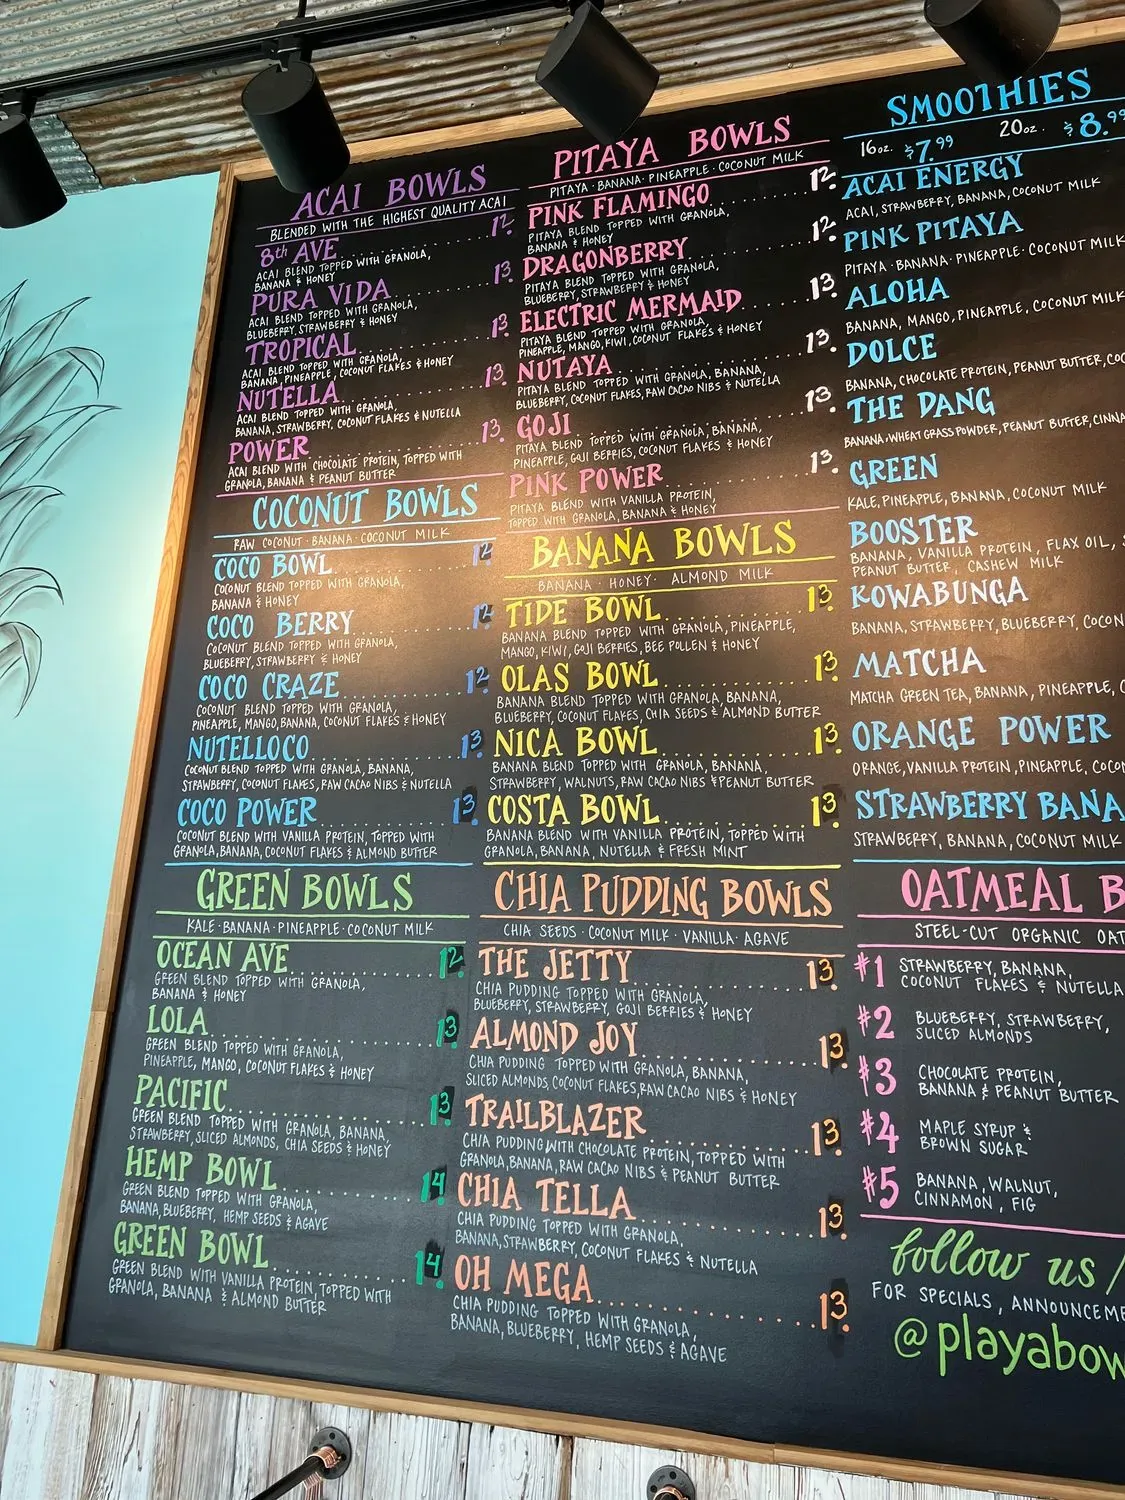 ACAI BOWLS
BLENDED WITH THE HIGHEST QUALITY ACAI
8th AVE 12.
ACAI BLEND TOPPED WITH GRANOLA,
BANANA & HONEY
PURA VIDA 13.
ACAI BLEND TOPPED WITH GRANOLA,
BLUEBERRY, STRAWBERRY & HONEY
TROPICAL 13.
ACAI BLEND TOPPED WITH GRANOLA,
BANANA, PINEAPPLE, COCONUT FLAKES & HONEY
NUTELLA 13.
ACAI BLEND TOPPED WITH GRANOLA,
BANANA, STRAWBERRY, COCONUT FLAKES & NUTELLA
POWER 13.
ACAI BLEND WITH CHOCOLATE PROTEIN, TOPPED WITH
GRANOLA, BANANA & PEANUT BUTTER
COCONUT BOWLS
RAW COCONUT · BANANA · COCONUT MILK
COCO BOWL 12
COCONUT BLEND TOPPED WITH GRANOLA,
BANANA & HONEY
COCO BERRY 12
COCONUT BLEND TOPPED WITH GRANOLA,
BLUEBERRY, STRAWBERRY & HONEY
COCO CRAZE 12
COCONUT BLEND TOPPED WITH GRANOLA,
PINEAPPLE, MANGO, BANANA, COCONUT FLAKES & HONEY
NUTELLOCO 13.
COCONUT BLEND TOPPED WITH GRANOLA, BANANA,
STRAWBERRY, COCONUT FLAKES, RAW CACAO NIBS & NUTELLA
COCO POWER 13.
COCONUT BLEND WITH VANILLA PROTEIN, TOPPED WITH
GRANOLA, BANANA, COCONUT FLAKES & ALMOND BUTTER
GREEN BOWLS
KALE · BANANA · PINEAPPLE · COCONUT MILK
OCEAN AVE 12
GREEN BLEND TOPPED WITH GRANOLA,
BANANA & HONEY
LOLA 13
GREEN BLEND TOPPED WITH GRANOLA,
PINEAPPLE, MANGO, COCONUT FLAKES & HONEY
PACIFIC 13
GREEN BLEND TOPPED WITH GRANOLA, BANANA,
STRAWBERRY, SLICED ALMONDS, CHIA SEEDS & HONEY
HEMP BOWL 14
GREEN BLEND TOPPED WITH GRANOLA,
BANANA, BLUEBERRY, HEMP SEEDS & AGAVE
GREEN BOWL 14
GREEN BLEND WITH VANILLA PROTEIN, TOPPED WITH
GRANOLA, BANANA & ALMOND BUTTER
PITAYA BOWLS
PITAYA · BANANA · PINEAPPLE · COCONUT MILK
PINK FLAMINGO 12.
PITAYA BLEND TOPPED WITH GRANOLA,
BANANA & HONEY
DRAGONBERRY 12.
PITAYA BLEND TOPPED WITH GRANOLA,
BLUEBERRY, STRAWBERRY & HONEY
ELECTRIC MERMAID 13.
PITAYA BLEND TOPPED WITH GRANOLA,
PINEAPPLE, MANGO, KIWI, COCONUT FLAKES & HONEY
NUTAYA 13.
PITAYA BLEND TOPPED WITH GRANOLA, BANANA,
BLUEBERRY, COCONUT FLAKES, RAW CACAO NIBS & NUTELLA
GOJI 13.
PITAYA BLEND TOPPED WITH GRANOLA, BANANA,
PINEAPPLE, GOJI BERRIES, COCONUT FLAKES & HONEY
PINK POWER 13.
PITAYA BLEND WITH VANILLA PROTEIN,
TOPPED WITH GRANOLA, BANANA & HONEY
BANANA BOWLS
BANANA · HONEY · ALMOND MILK
TIDE BOWL 13.
BANANA BLEND TOPPED WITH GRANOLA, PINEAPPLE,
MANGO, KIWI, GOJI BERRIES, BEE POLLEN & HONEY
OLAS BOWL 13.
BANANA BLEND TOPPED WITH GRANOLA, BANANA,
BLUEBERRY, COCONUT FLAKES, CHIA SEEDS & ALMOND BUTTER
NICA BOWL 13.
BANANA BLEND TOPPED WITH GRANOLA, BANANA,
STRAWBERRY, WALNUTS, RAW CACAO NIBS & PEANUT BUTTER
COSTA BOWL 13.
BANANA BLEND WITH VANILLA PROTEIN, TOPPED WITH
GRANOLA, BANANA, NUTELLA & FRESH MINT
CHIA PUDDING BOWLS
CHIA SEEDS · COCONUT MILK · VANILLA · AGAVE
THE JETTY 13.
CHIA PUDDING TOPPED WITH GRANOLA,
BLUEBERRY, STRAWBERRY, GOJI BERRIES & HONEY
ALMOND JOY 13.
CHIA PUDDING TOPPED WITH GRANOLA, BANANA,
SLICED ALMONDS, COCONUT FLAKES, RAW CACAO NIBS & HONEY
TRAILBLAZER 13.
CHIA PUDDING WITH CHOCOLATE PROTEIN, TOPPED WITH
GRANOLA, BANANA, RAW CACAO NIBS & PEANUT BUTTER
CHIA TELLA 13.
CHIA PUDDING TOPPED WITH GRANOLA,
BANANA, STRAWBERRY, COCONUT FLAKES & NUTELLA
OH MEGA 13.
CHIA PUDDING TOPPED WITH GRANOLA,
BANANA, BLUEBERRY, HEMP SEEDS & AGAVE
SMOOTHIES
16oz. $7.99 20oz. $8.99
ACAI ENERGY
ACAI, STRAWBERRY, BANANA, COCONUT MILK
PINK PITAYA
PITAYA · BANANA · PINEAPPLE · COCONUT MILK
ALOHA
BANANA, MANGO, PINEAPPLE, COCONUT MILK
DOLCE
BANANA, CHOCOLATE PROTEIN, PEANUT BUTTER, COC
THE DANG
BANANA, WHEAT GRASS POWDER, PEANUT BUTTER, CINNA
GREEN
KALE, PINEAPPLE, BANANA, COCONUT MILK
BOOSTER
BANANA, VANILLA PROTEIN, FLAX OIL,
PEANUT BUTTER, CASHEW MILK
KOWABUNGA
BANANA, STRAWBERRY, BLUEBERRY, COCON
MATCHA
MATCHA GREEN TEA, BANANA, PINEAPPLE, C
ORANGE POWER
ORANGE, VANILLA PROTEIN, PINEAPPLE, COCON
STRAWBERRY BANA
STRAWBERRY, BANANA, COCONUT MILK
OATMEAL B
STEEL-CUT ORGANIC OAT
#1 STRAWBERRY, BANANA,
COCONUT FLAKES & NUTELLA
#2 BLUEBERRY, STRAWBERRY,
SLICED ALMONDS
#3 CHOCOLATE PROTEIN,
BANANA & PEANUT BUTTER
#4 MAPLE SYRUP &
BROWN SUGAR
#5 BANANA, WALNUT,
CINNAMON, FIG
follow us /
FOR SPECIALS, ANNOUNCEME
@playabow